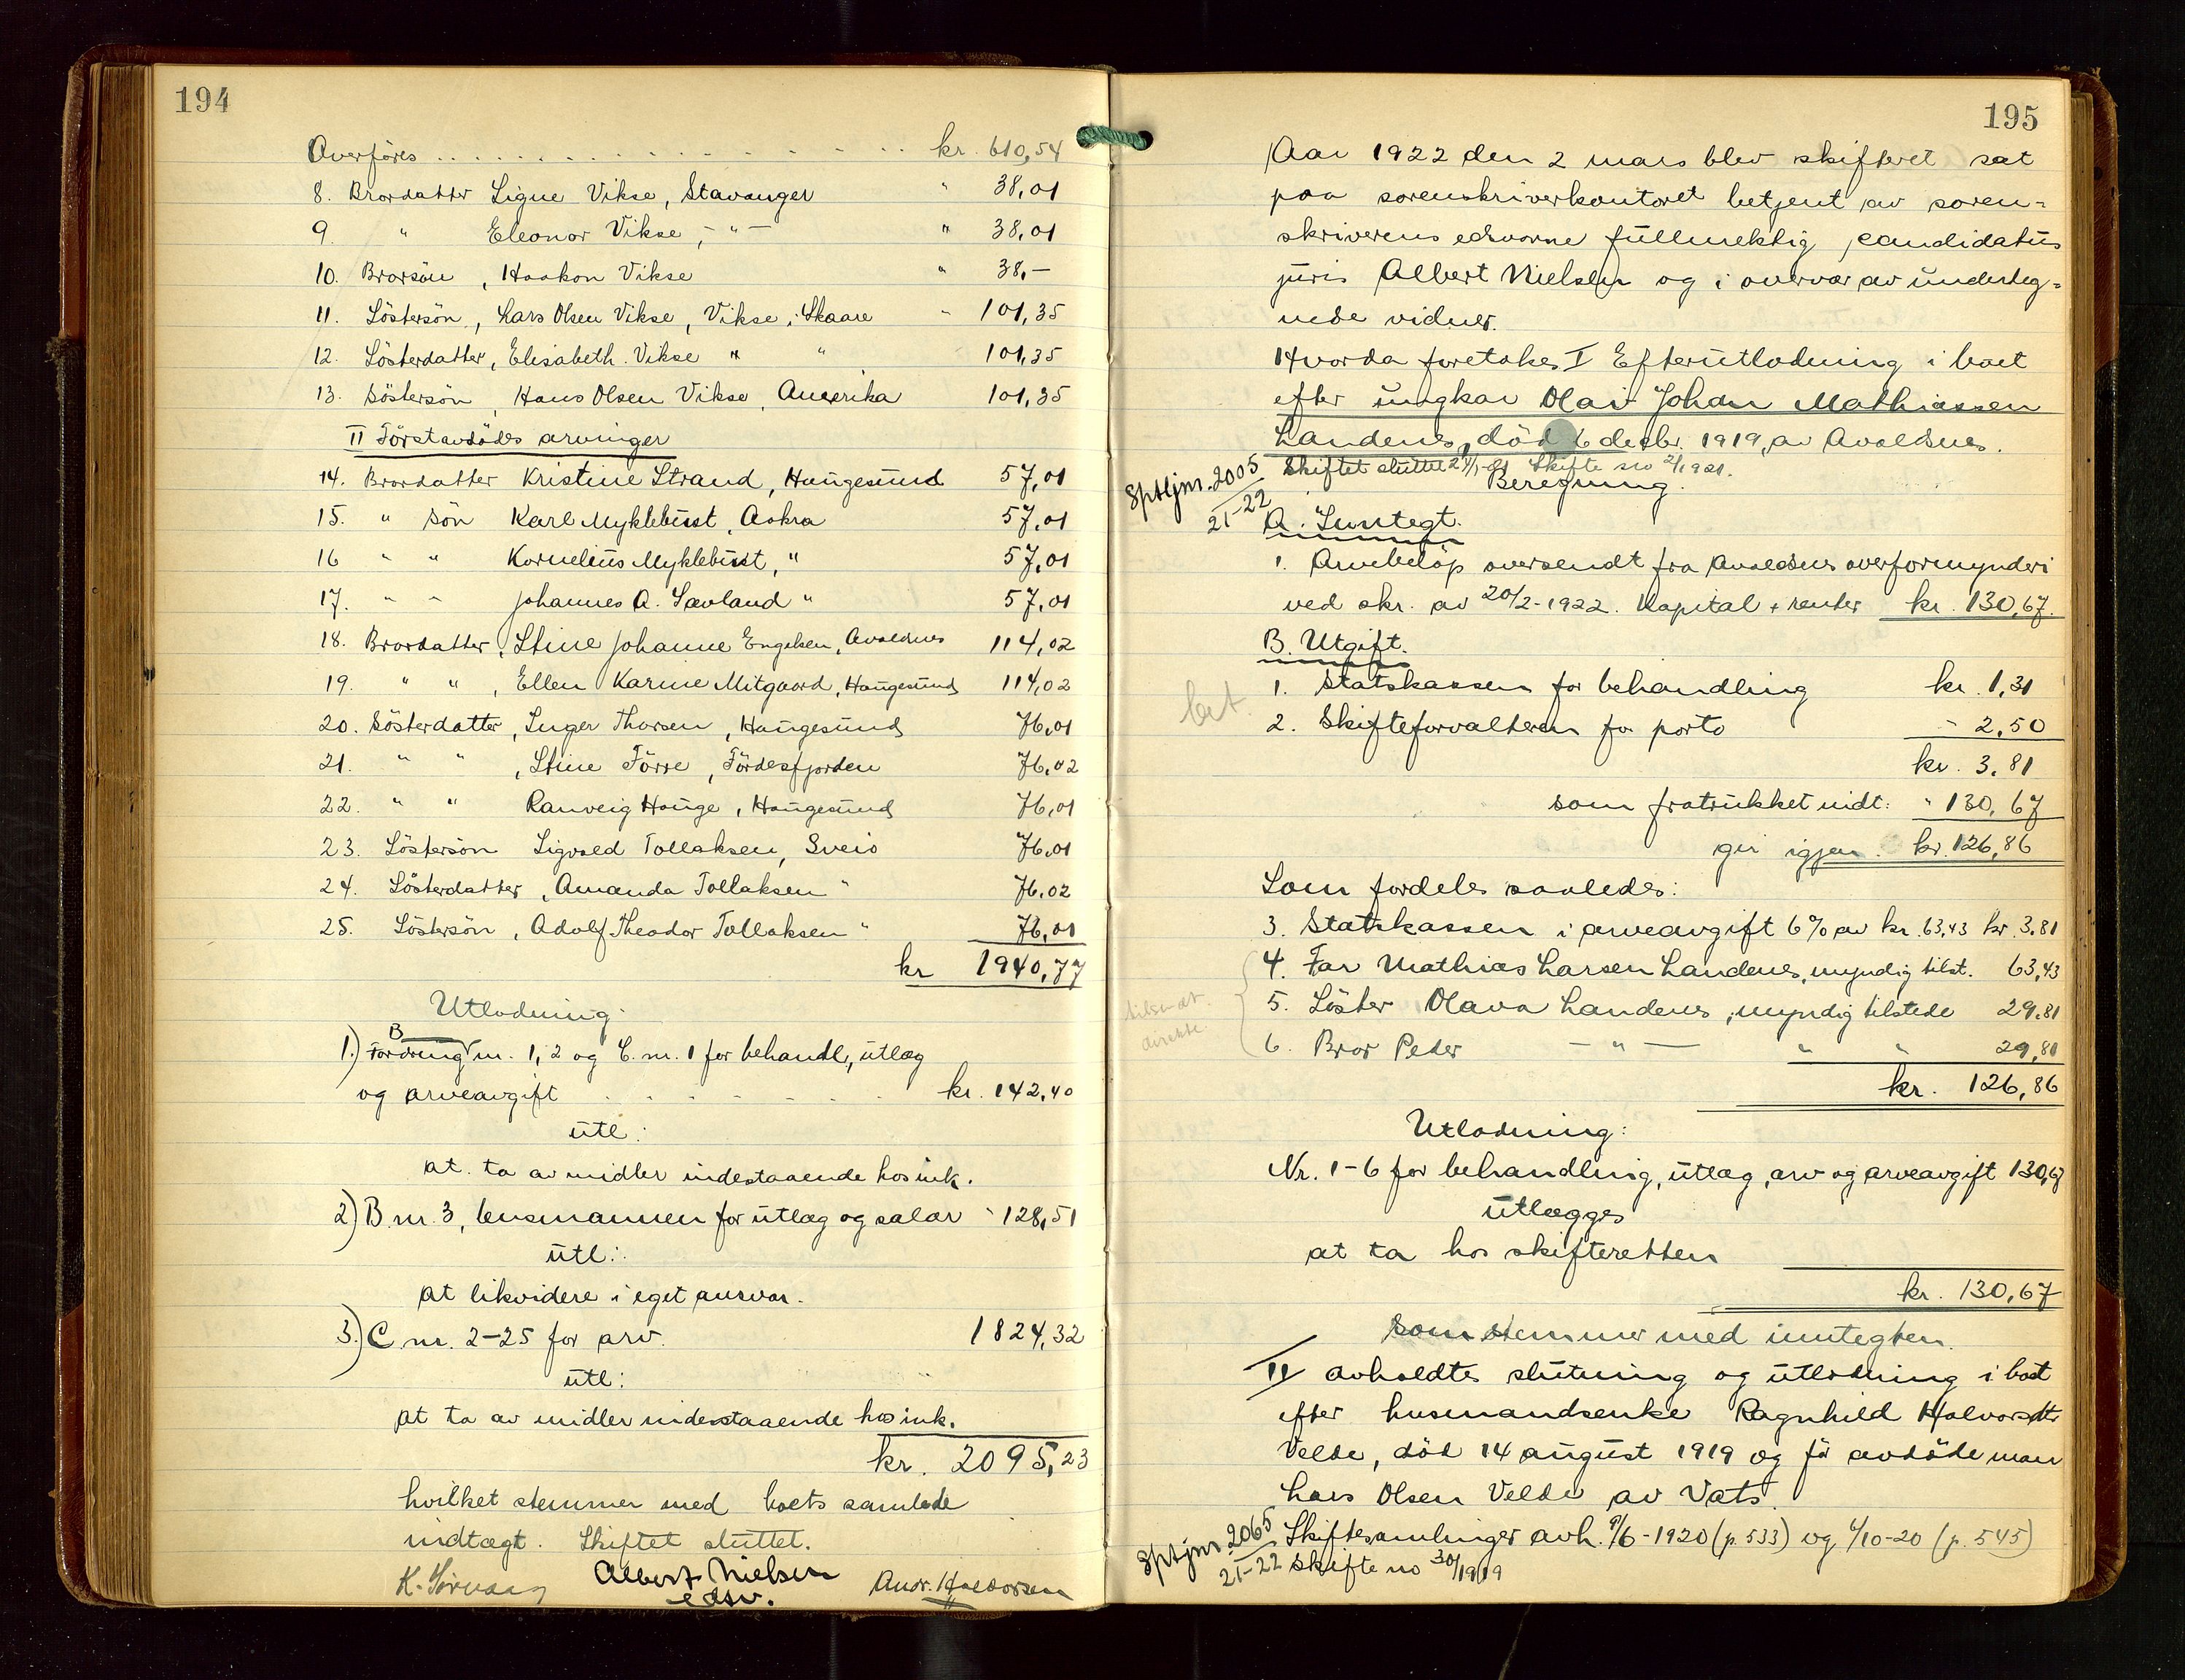 194
Overföres . . . . . . . . kr. 610,54
8. Brordatter Signe Vikse, Stavanger " 38,01
9. " Eleonor Vikse, - " - " 38,01
10. Brorsön, Haakon Vikse " 38,-
11. Söstersön, Lars Olsen Vikse, Vikse i Skaare " 101,35
12. Sösterdatter, Elisabeth Vikse " " 101,35
13. Söstersön, Hans Olsen Vikse, Amerika 101,35
II Förstavdödes arvinger
14. Brordatter Kristine Strand, Haugesund 57,01
15. " Sön Karl Myklebust, Aakra 57,01
16 " " Kornelius Myklebust, " 57,01
17. " " Johannes A. Sævland " 57,01
18. Brordatter, Stine Johanne Engelsen, Avaldsnes 114,02
19. " " , Ellen Karine Mitgaard, Haugesund 114,02
20. Sösterdatter, Inger Thorsen, Haugesund 76,01
21. " " , Stine Förre, Fördesfjorden 76,02
22. " " Ranveig Hauge, Haugesund 76,01
23. Söstersön Sigvald Tollaksen, Sveio 76,01
24. Sösterdatter, Amanda Tollaksen " 76,02
25. Söstersön, Adolf Theodor Tollaksen " 76,01
kr 1940,77
Utlodning
1.) Fordring B nr. 1, 2 og C. nr. 1 for behandl., utlæg
og arveavgift . . . . . . kr. 142,40
utl:
at ta av midler indestaaende hos ink.
2) B. nr. 3, lensmannen for utlæg og salær " 128,51
utl:
at likvidere i eget ansvar.
3.) C nr. 2-25 for arv. 1824,32
utl:
at ta av midler indestaaende hos ink.
kr. 2095,23
hvilket stemmer med boets samlede
indtægt. Skiftet sluttet.
Albert Nielsen Andr. Haldorsen
edsv.
195
Aar 1922 den 2 mars blev skifteret sat
paa sorenskriverkontoret betjent av soren=
skriverens edsvorne fullmektig, candidatus
juris Albert Nielsen og i overvær av underteg=
nede vidner.
Hvorda foretokes I Efterutlodning i boet
efter ungkar Olai Johan Mathiassen
Landenes, död 6 desbr. 1919, av Avaldsnes.
Sptljnr. 2005 Skiftet sluttet 24/1-21 Skifte no 2/1921.
21-22 Beregning.
A. Inntegt.
1. Arvebelöp oversendt fra Avaldsnes overformynderi
ved skr. av 20/2-1922. Kapital + renter kr. 130,67.
B. Utgift.
1. Statskassen for behandling kr. 1,31
bet. 2. Skifteforvalteren for porto - 2,50
kr. 3,81
som fratrukket indt: " 130,67
gir igjen: kr. 126,86
Som fordeles saaledes:
3. Statskassen i arveavgift 6% av kr. 63,43 kr. 3,81
4. Far Mathias Larsen Landenes, myndig tilst. 63,43
tilsendt 5. Söster Olava Landenes, myndig tilstede 29,81
direkte. 6. Bror Peder - " - " " 29,81
kr. 126,86
Utlodning:
Nr. 1-6 for behandling, utlæg, arv og arveavgift 130,67
utlægges
at ta hos skifteretten
kr. 130,67
som stemmer med inntegten.
II avholdtes slutning og utlodning i boet
efter husmandsenke Ragnhild Halvorsdtr
Velde, död 14 august 1919 og för avdöde man
Lars Olsen Velde av Vats.
Sptljnr. 2065 Skiftesamlinger avh. 9/6-1920 (p. 533) og 4/10-20 (p. 545)
21-22 Skifte no 30/1919